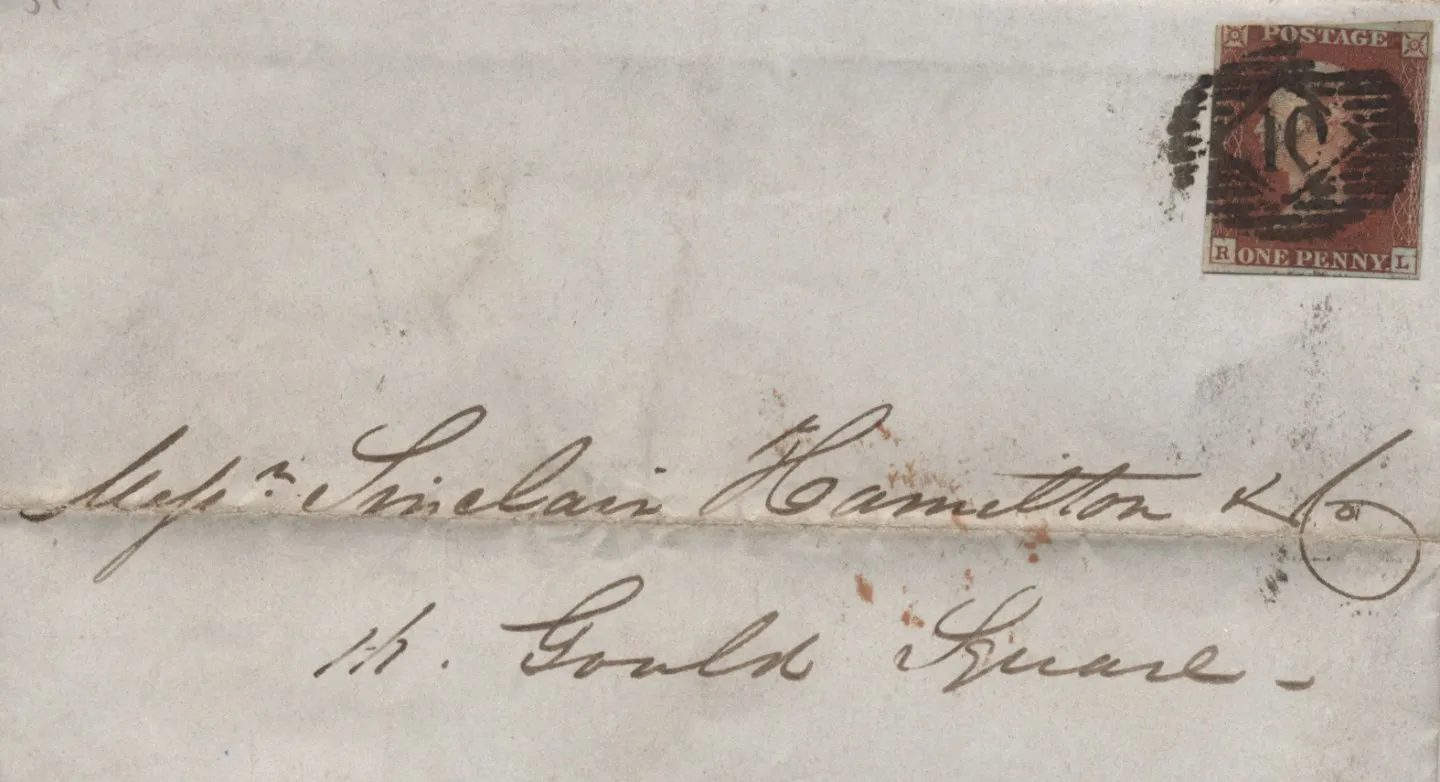 POSTAGE
10
R ONE PENNY. L
Messrs Sinclair Hamilton & Co
Gould Square